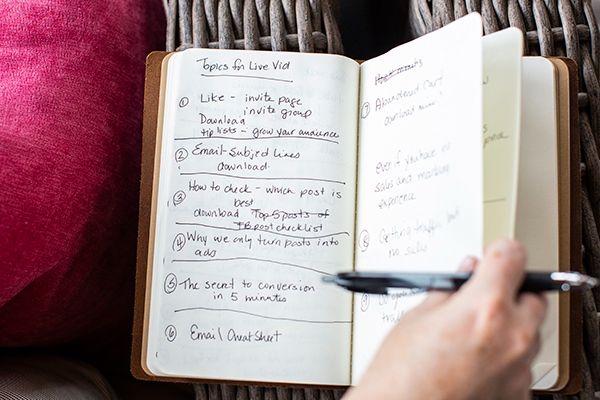 Topics for Live Vid
① Like - invite page
invite group
Download
tip lists - grow your audience
② Email-Subject Lines
download
③ How to check - which post is
best
download Top 5 posts of
FB post checklist
④ Why we only turn posts into
ads
⑤ The secret to conversion
in 5 minutes
⑥ Email Cheat Sheet
⑦ Abandoned Cart
download
Even if you have no
sales and marketing
experience
⑧ Getting traffic but
no sales
⑨